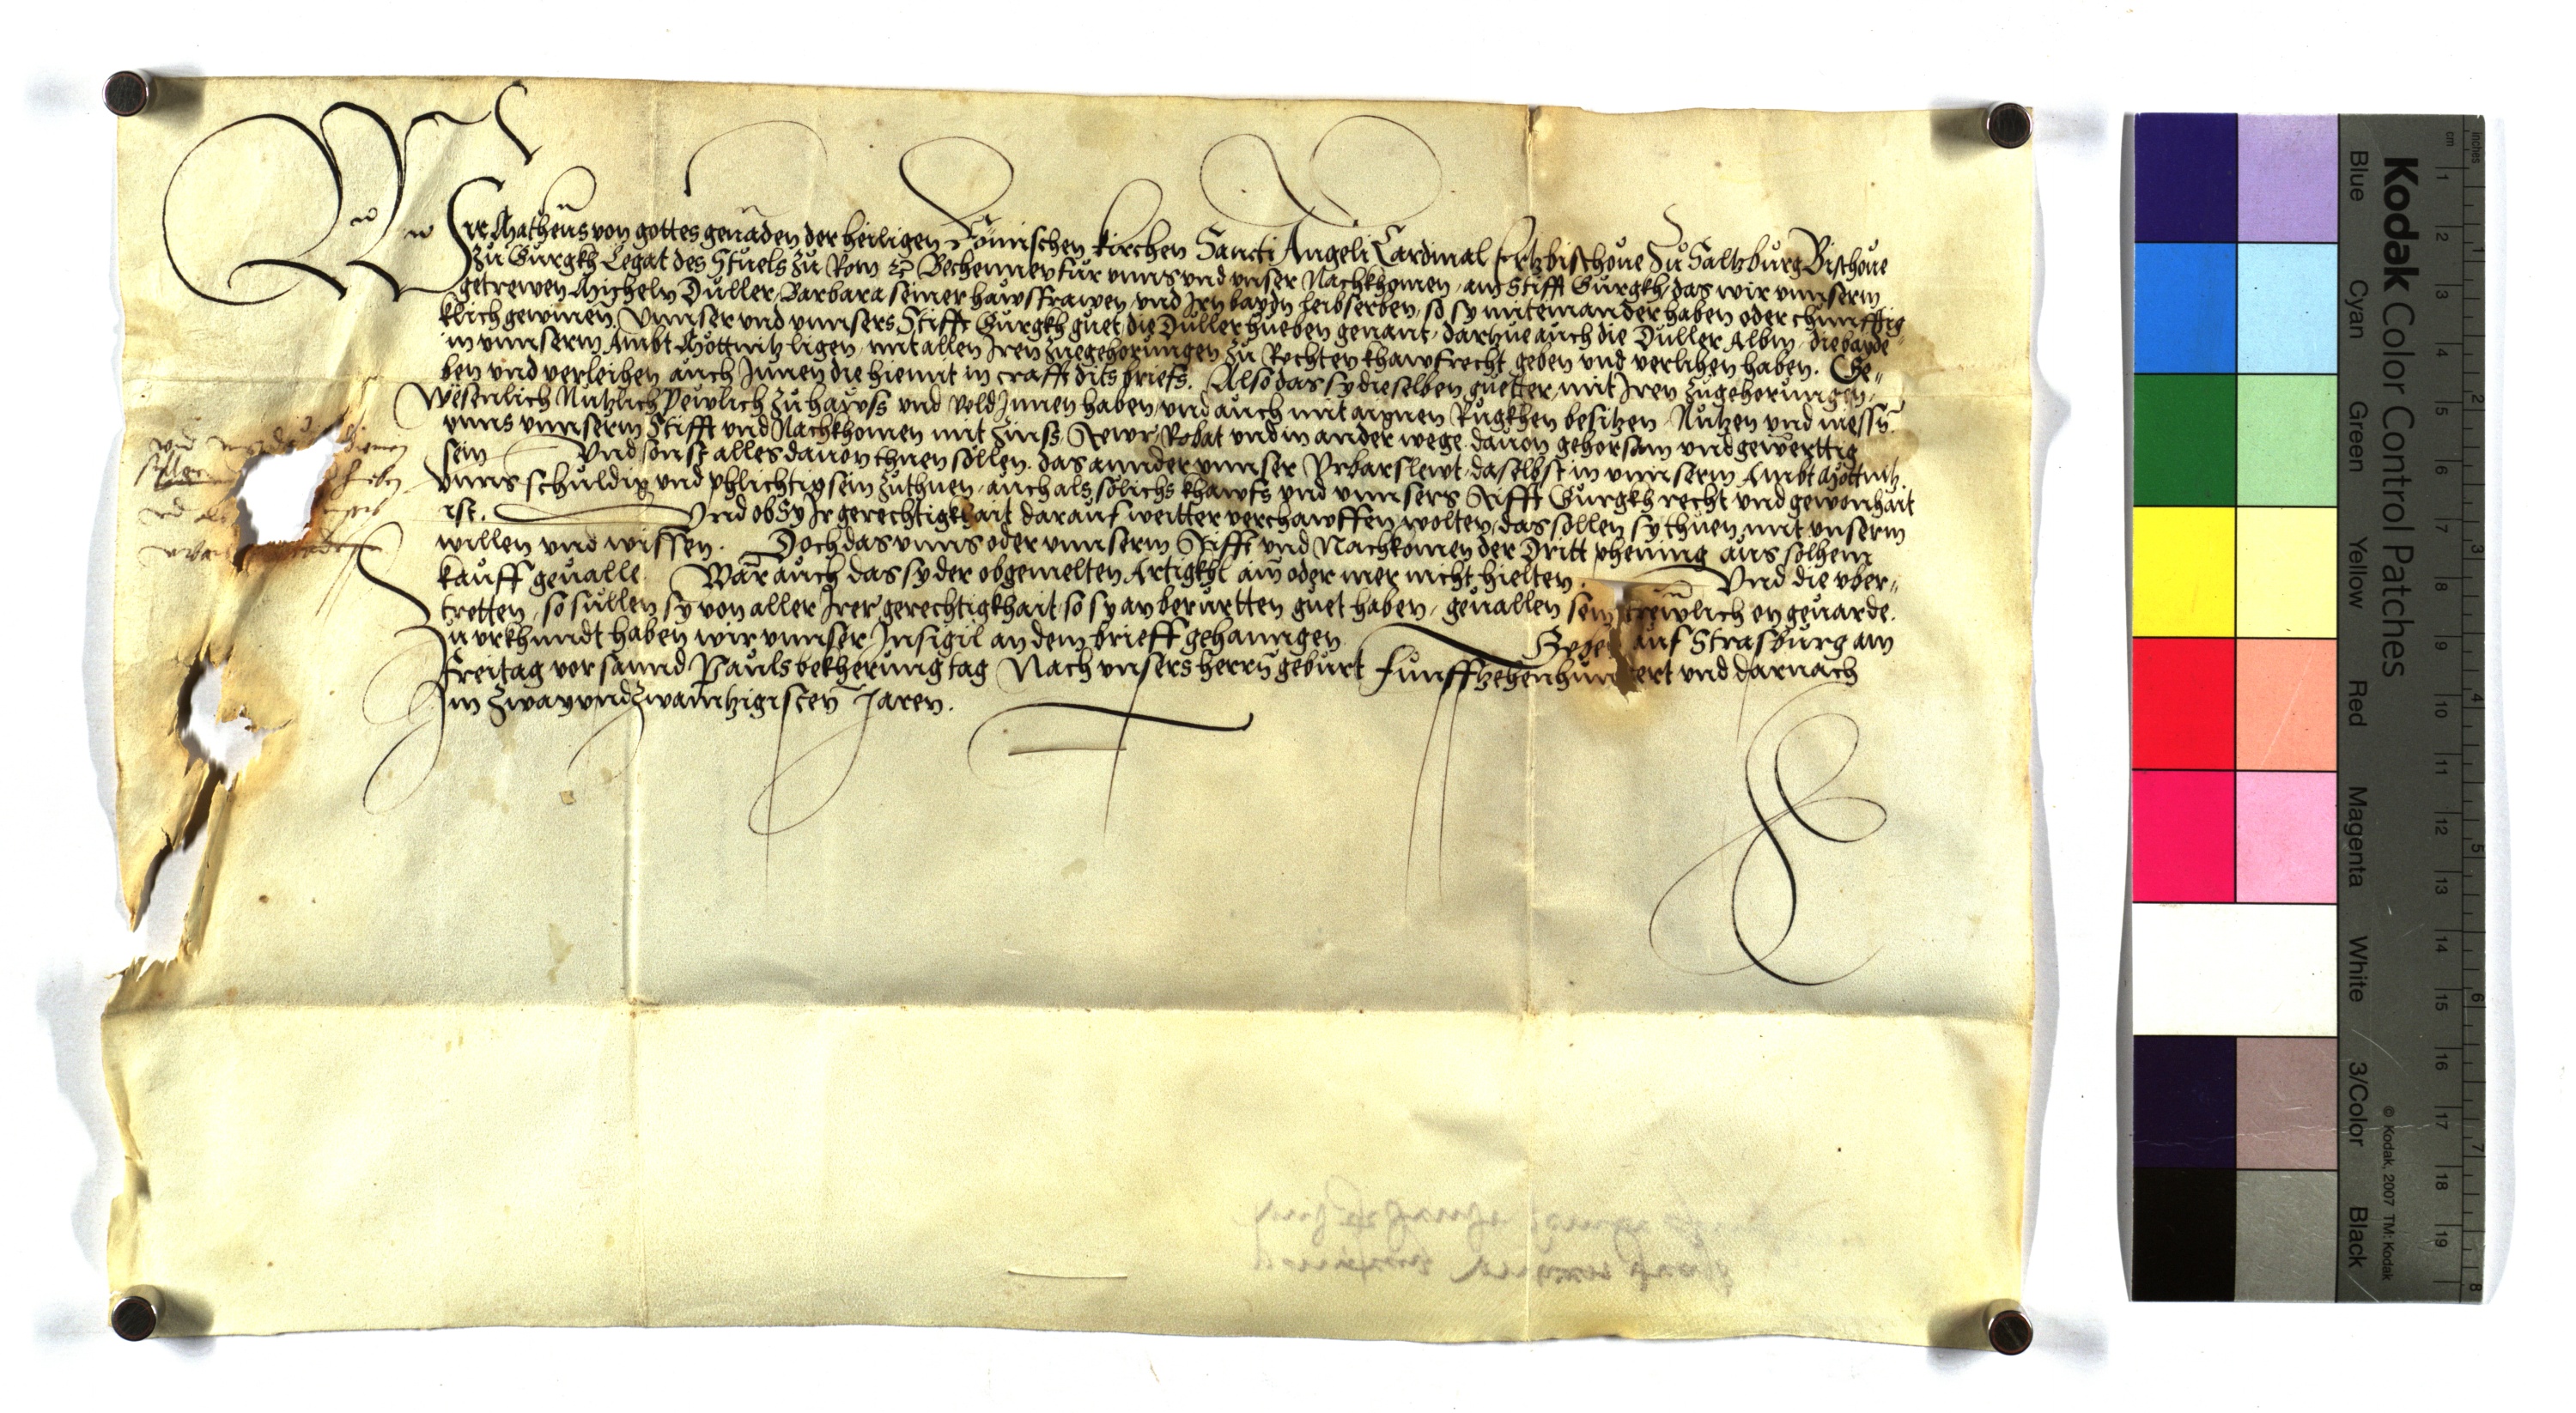 Wir Matheus von gottes genaden der heiligen Römischen kirchen Sancti Angeli Cardinal Ertzbischoue Zu Saltzburg Bischoue
Zu Gurgkh Legat des Stuels zu Rom etc Bechennen für vnns vnd vnser Nachkhomen am Stifft Gurgkh, das wir vnnserm
getrewen Micheln Duller, Barbara seiner hawsfrawen, vnd Irn bayden leibserben, so sy miteinander haben oder chunfftig=
klich gewinen, Vnnser vnd vnnsers Stiffts Gurgkh guet, die Duller hueben genant, dartzue auch die Duller Albm, die bayde
in vnnserm Ambt Möttnitz ligen, mit allen Iren zuegehorungen zu Rechten khawfrecht geben vnd verlihen haben. Ge=
ben vnd verleihen auch Innen die hiemit in crafft dits briefs. Also das sy dieselben guetter, mit Iren zugehorungen,
Wesenlich Nutzlich Pewlich zu hawss vnd veld Innen haben, vnd auch mit aignen Rugkhen besitzen Nutzen vnd niessn̄
vnns vnnserm Stifft vnd Nachkhomen mit Zinss Stewr, Robat vnd in ander wege. dauon gehorsam vnd gewerttig
sein Vnd sonst alles dauon thuen söllen. das annder vnnser Vrbarslewt, daselbst in vnnserm Ambt Möttnitz.
Vnns schuldig vnd phlichtig sein zuthuen, auch als sölichs khawfs vnd vnnsers Stifft Gurgkh recht vnd gewonhait
ist. Vnd ob Sy Ir gerechtigkhait darauf weitter verchawffen wolten, das söllen sy thuen mit vnserm
willen vnd wissen. Doch das vnns oder vnnserm Stifft vnd Nachkomen der Dritt phening aus solhem
kauff geualle. Wār auch das sy der obgemelten Artigkhl ain oder mer nicht hielten. Vnd die vber=
tretten, so sullen sy von aller Irer gerechtigkhait so sy an berurtten guet haben, geuallen sein trewlich on geuarde.
Zu vrkhundt haben wir vnnser Insigil an dem brieff gehanngen. Geben auf Strasburg am
Freitag vor sannd Pauls bekherung tag Nach vnsers herrn̄ geburt Funfftzehenhundert vnd darnach
Im Zwayvndzwaintzigisten Jaren.